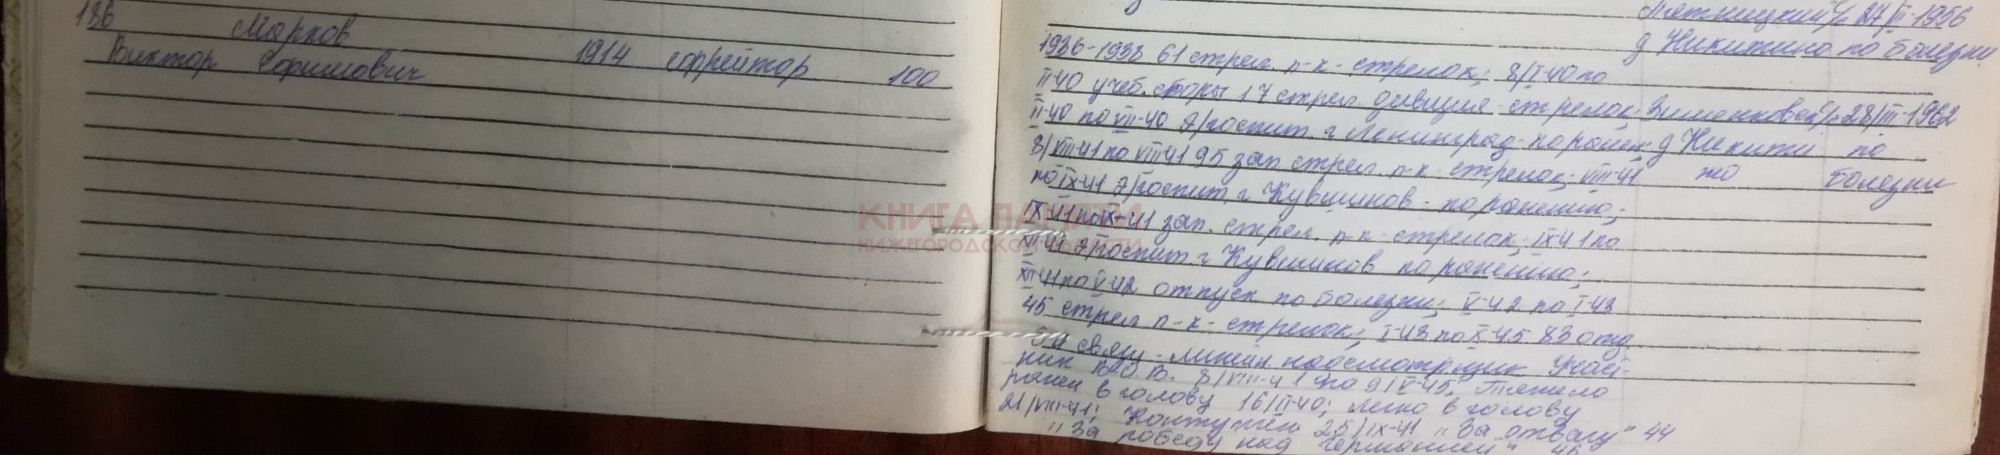 186 Марков
Виктор Ефимович 1914 ефрейтор 100
Пятницкий с/с 27/II-1956
д Никитино по болезни
1936-1938 61 стрел. п-к - стрелок; 8/I-40 по
II-40 учеб. сборы 17 стрел. дивизия - стрелок; 28/III-1962
II-40 по VII-40 э/госпит. г Ленинград - по ранен; д Никити по
8/VIII-41 по VIII-41 95 зап стрел. п-к - стрелок; VIII-41 но болезни
по IX-41 э/госпит. г Кувшинов - по ранению;
IX-41 по IX-41 зап. стрел. п-к - стрелок; IX-41 по
XII-41 э/госпит. г Кувшинов по ранению;
XII-41 по V-42 отпуск по болезни; V-42 по I-43
45 стрел п-к - стрелок; I-43 по X-45 83 отд.
связи - линейн надсмотрщик Участ-
ник В.О.В. 8/VIII-41 по 9/V-45. Тяжело
ранен в голову 16/II-40; легко в голову
21/VIII-41; Контужен 25/IX-41 "За отвагу" 44
"За победу над Германией" 46
КНИГА ПАМЯТИ
НИЖЕГОРОДСКОЙ ОБЛАСТИ